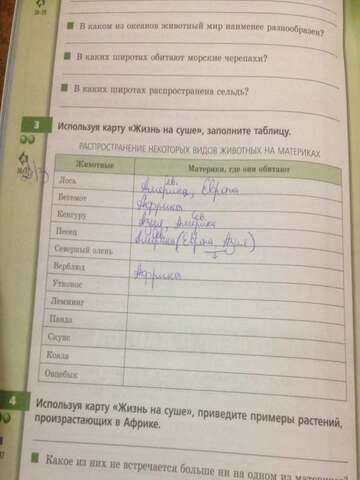 38-39
В каком из океанов животный мир наименее разнообразен?
В каких широтах обитают морские черепахи?
В каких широтах распространена сельдь?
3 Используя карту «Жизнь на суше», заполните таблицу.
РАСПРОСТРАНЕНИЕ НЕКОТОРЫХ ВИДОВ ЖИВОТНЫХ НА МАТЕРИКАХ
Животные Материки, где они обитают
Лось св. Америка, Европа
Бегемот Африка
Кенгуру Азия, св. Америка
Песец св. Америка (Европа, Азия)
Северный олень
Верблюд Африка
Утконос
Лемминг
Панда
Скунс
Коала
Овцебык
4 Используя карту «Жизнь на суше», приведите примеры растений,
произрастающих в Африке.
Какое из них не встречается больше ни на одном из